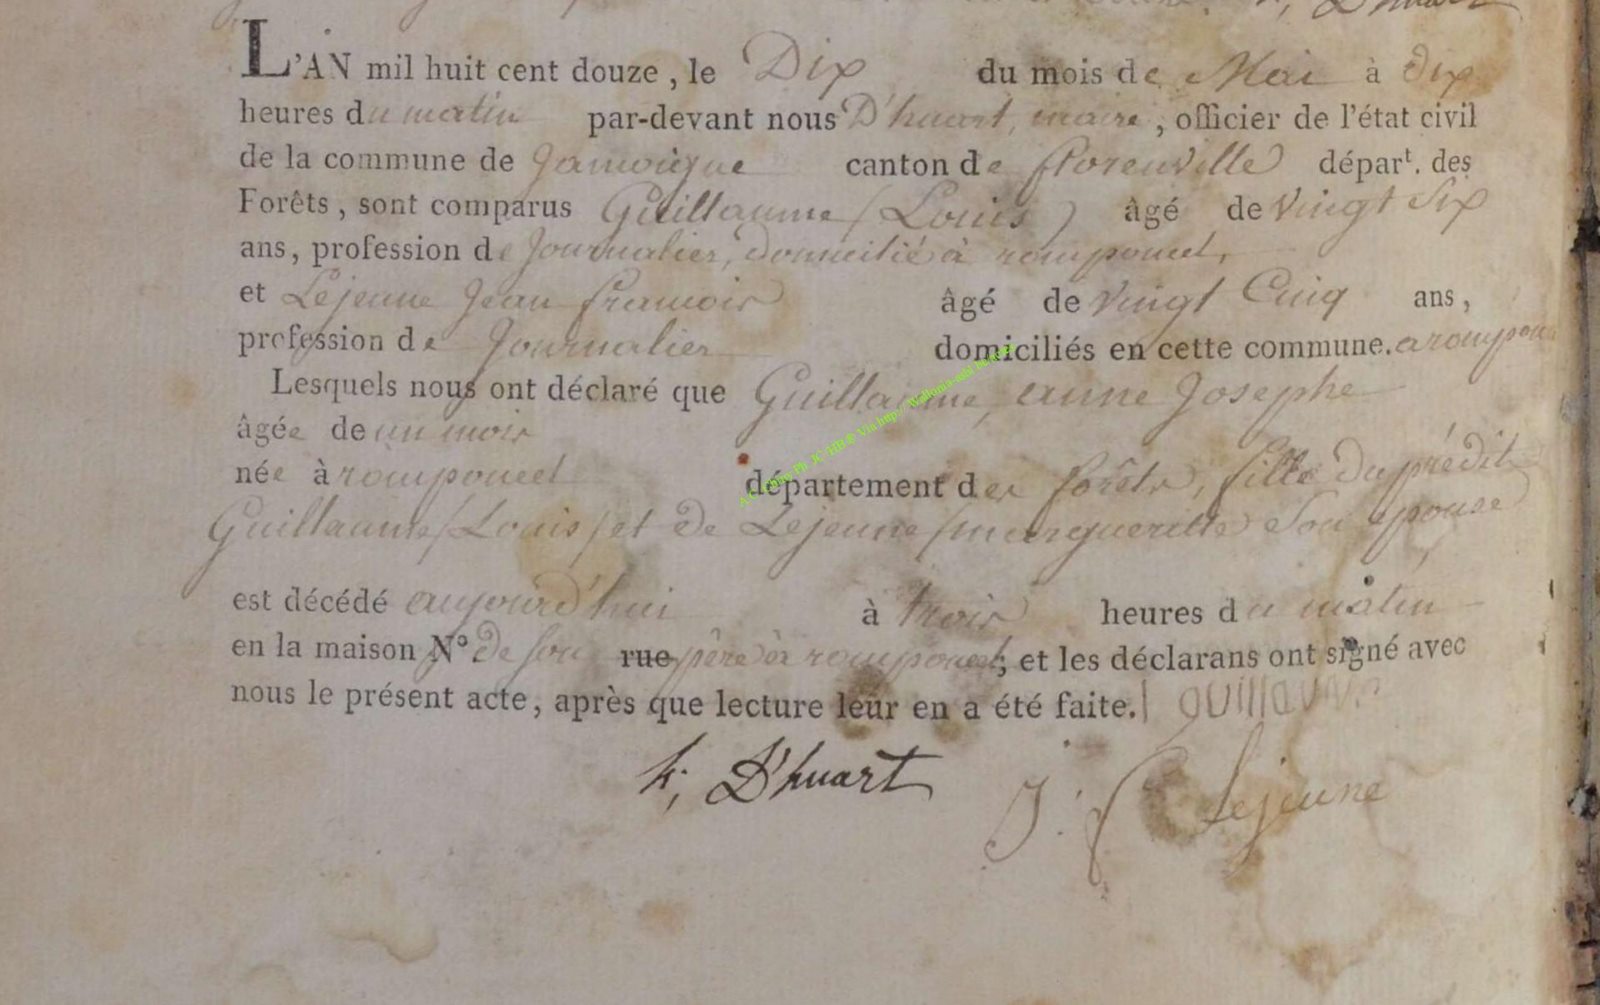 D'huart
L'AN mil huit cent douze, le Dix du mois de Mai à dix
heures du matin par-devant nous D'huart, maire, officier de l'état civil
de la commune de Jamoigne canton de florenville départ. des
Forêts, sont comparus Guillaume (Louis) âgé de vingt Six
ans, profession de Journalier, domicilié à romponcel,
et Lejeune Jean francois âgé de vingt Cinq ans,
profession de Journalier domiciliés en cette commune. a rompon
Lesquels nous ont déclaré que Guillaume, anne Josephe
âgée de un mois
née à romponcel département des forêts, fille du prédit
Guillaume (Louis) et de Lejeune (margueritte) Son epouse
est décédé aujourd'hui à trois heures du matin
en la maison N° de son rue père à romponcel; et les déclarans ont signé avec
nous le présent acte, après que lecture leur en a été faite. l guillaume
h; D'huart J. f Lejeune